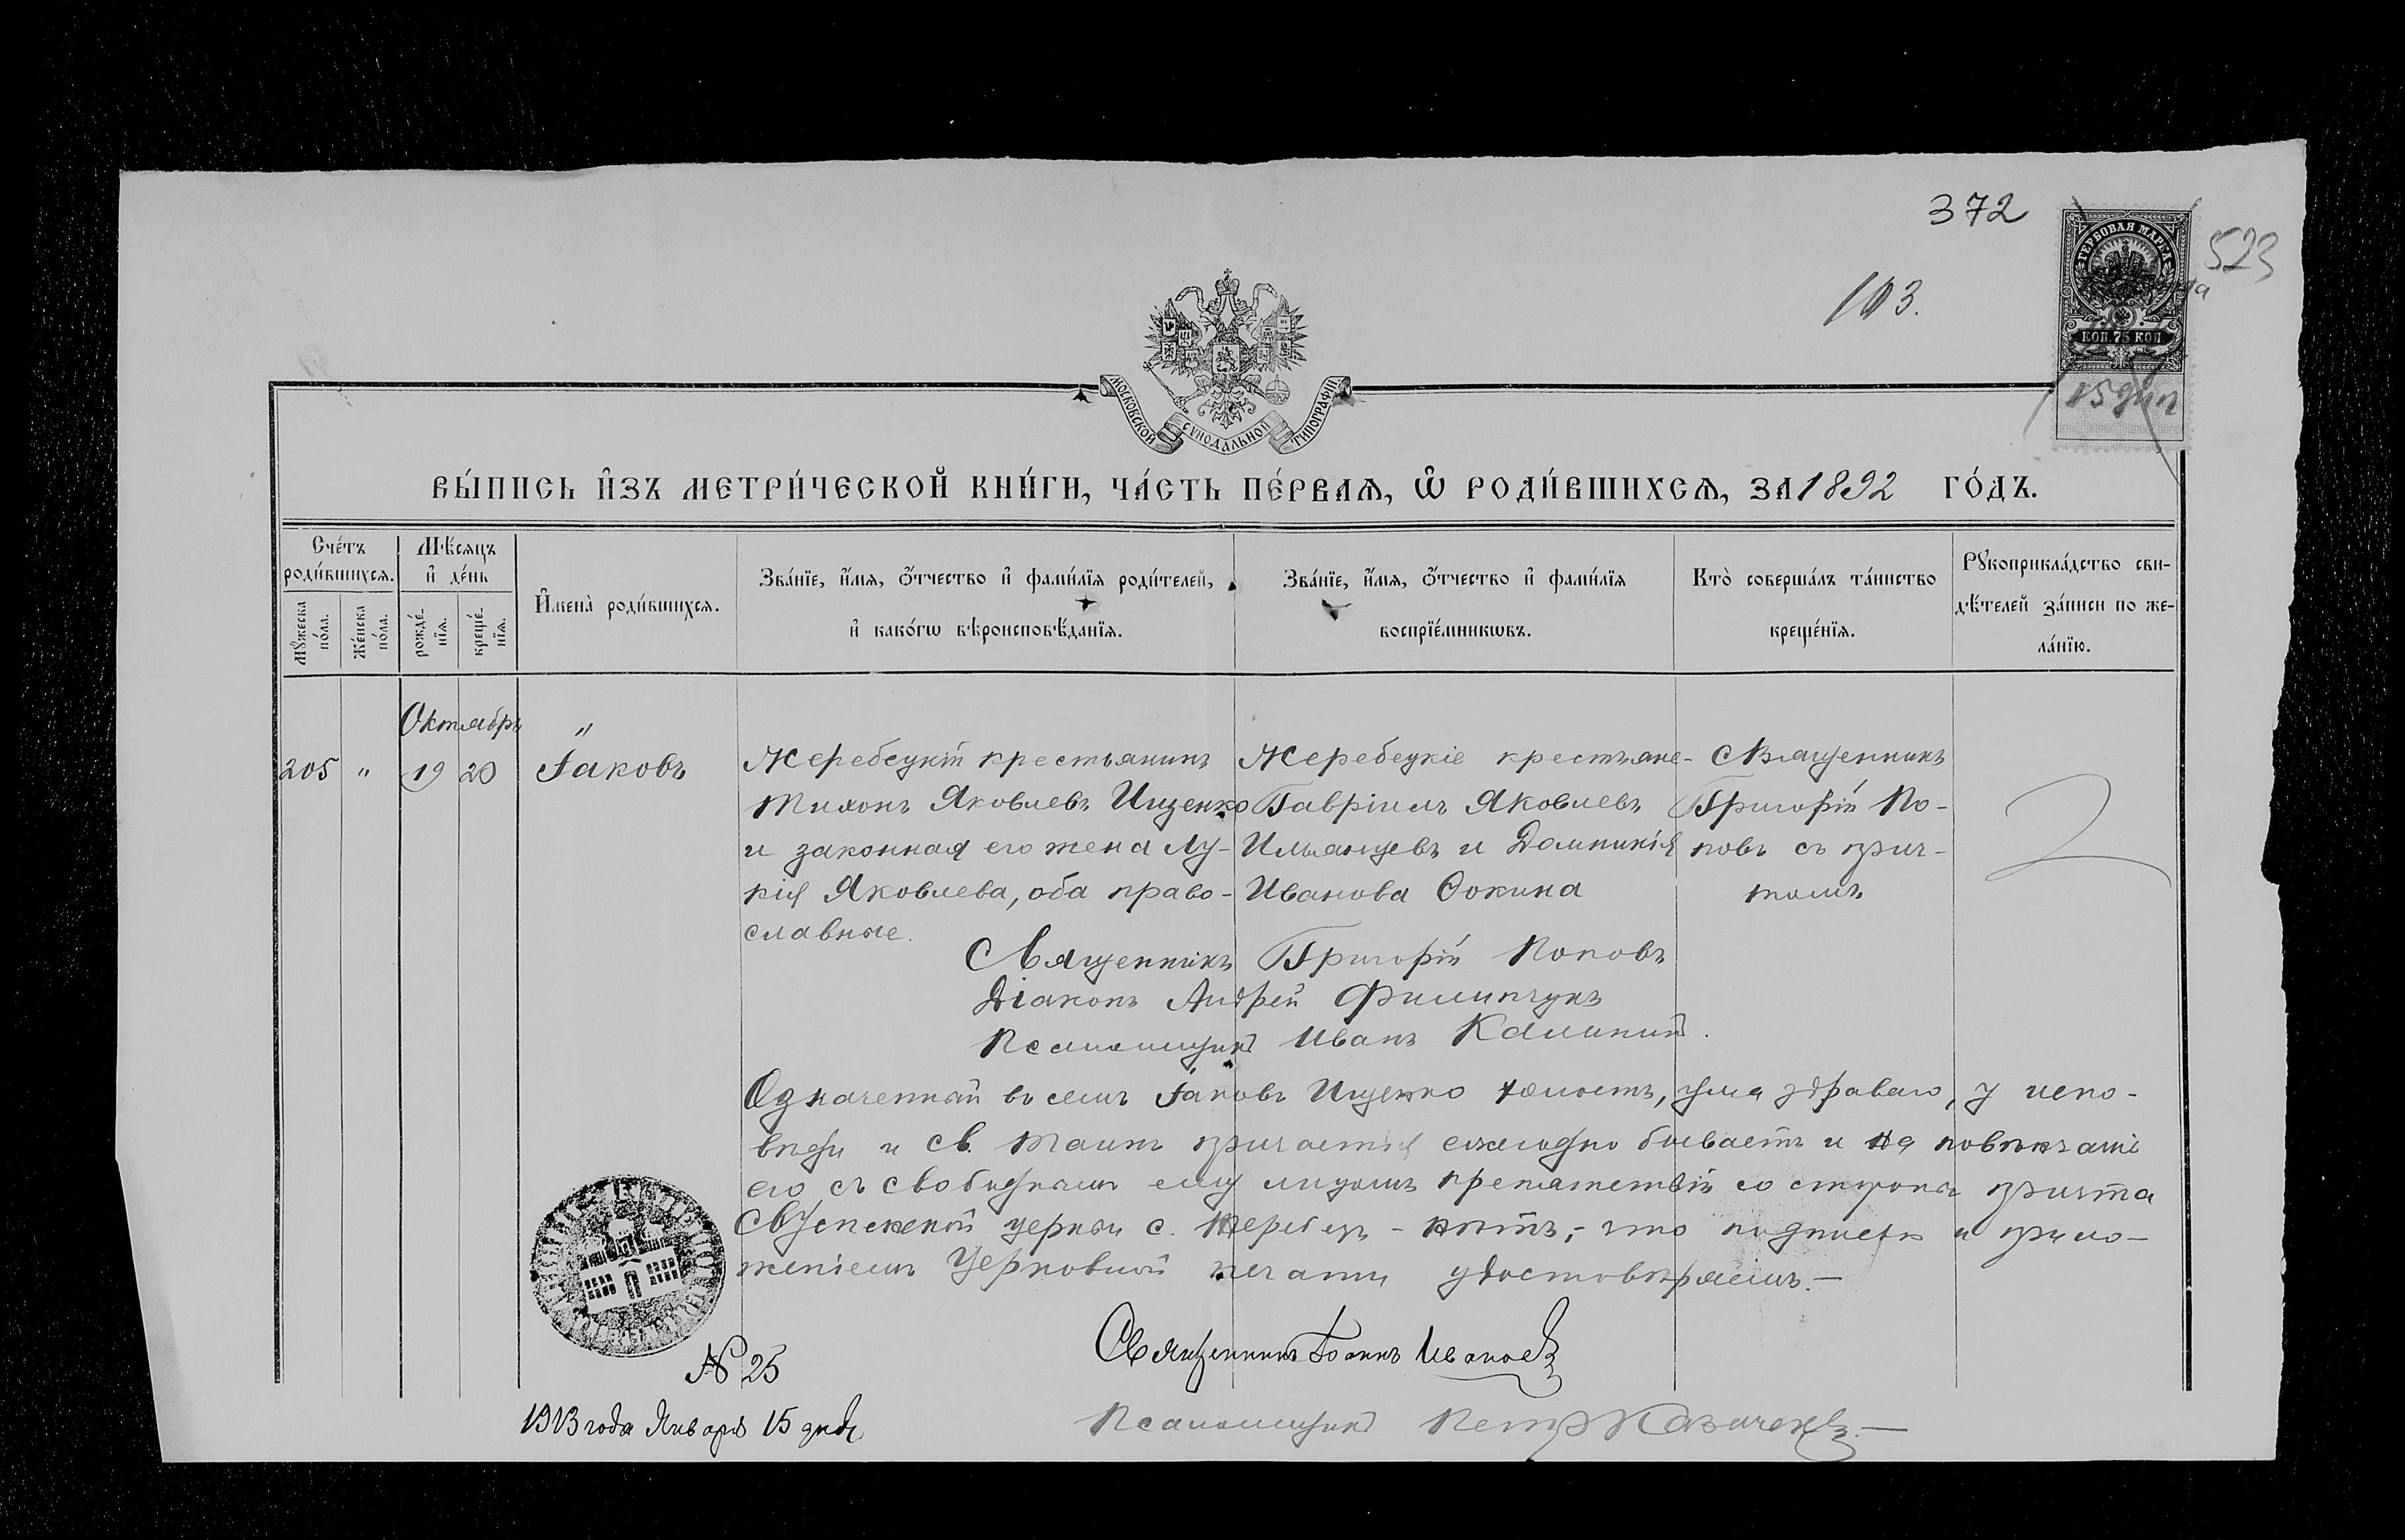 372
523
103.
ГЕРБОВАЯ МАРКА
КОП. 75 КОП
15 янв
МОСКОВСКОЙ СѴНОДАЛЬНОЙ ТИПОГРАФІИ
ВЫ́ПИСЬ И҆ЗЪ МЕТРИ́ЧЕСКОЙ КНИ́ГИ, ЧА́СТЬ ПЕ́РВАѦ, Ѽ РОДИ́ВШИХСѦ, ЗА 1892 ГО́ДЪ.
Сче́тъ роди́вшихсѧ.
Мꙋ́жеска по́ла.
Же́нска по́ла.
Мѣ́сѧцъ и҆ де́нь
рожде́нїѧ.
креще́нїѧ.
И҆мена̀ роди́вшихсѧ.
Зва́нїе, и҆́мѧ, ѻ҆́тчество и҆ фами́лїѧ роди́телей,
и҆ како́гѡ вѣроисповѣ́данїѧ.
Зва́нїе, и҆́мѧ, ѻ҆́тчество и҆ фами́лїѧ
воспрїе́мникѡвъ.
Кто̀ соверша́лъ та́инство
креще́нїѧ.
Рꙋкоприкла́дство сви-
дѣ́телей за́писи по же-
ла́нїю.
Октябрь
"
205 " 19 20 Іаковъ
Жеребецкій крестьянинъ
Тихонъ Яковлевъ Ищенко
и законная его жена Лу-
кія Яковлева, оба право-
славные.
Жеребецкіе крестьяне-
Гавріилъ Яковлевъ
и Домникія
Иванова Ѳокина
Священникъ
Григорій По-
повъ съ прич-
томъ
Священникъ Григорій Поповъ
Діаконъ Андрей Филипчукъ
Псаломщикъ Иванъ Калинин.
Означенный въ семъ Іаковъ Ищенко холостъ, ума здраваго, у испо-
вѣди и Св. Таинъ причастія ежегодно бываетъ и на повѣнчаніе
его съ свободнымъ ему лицомъ препятствій со стороны причта
Св Успенской церкви с. Жеребецъ - нѣтъ,- что подписью и прило-
женіемъ Церковной печати удостовѣряемъ.-
Священникъ Іоаннъ Ивановъ
№ 25
1913 года Января 15 дня
Псаломщикъ Петръ